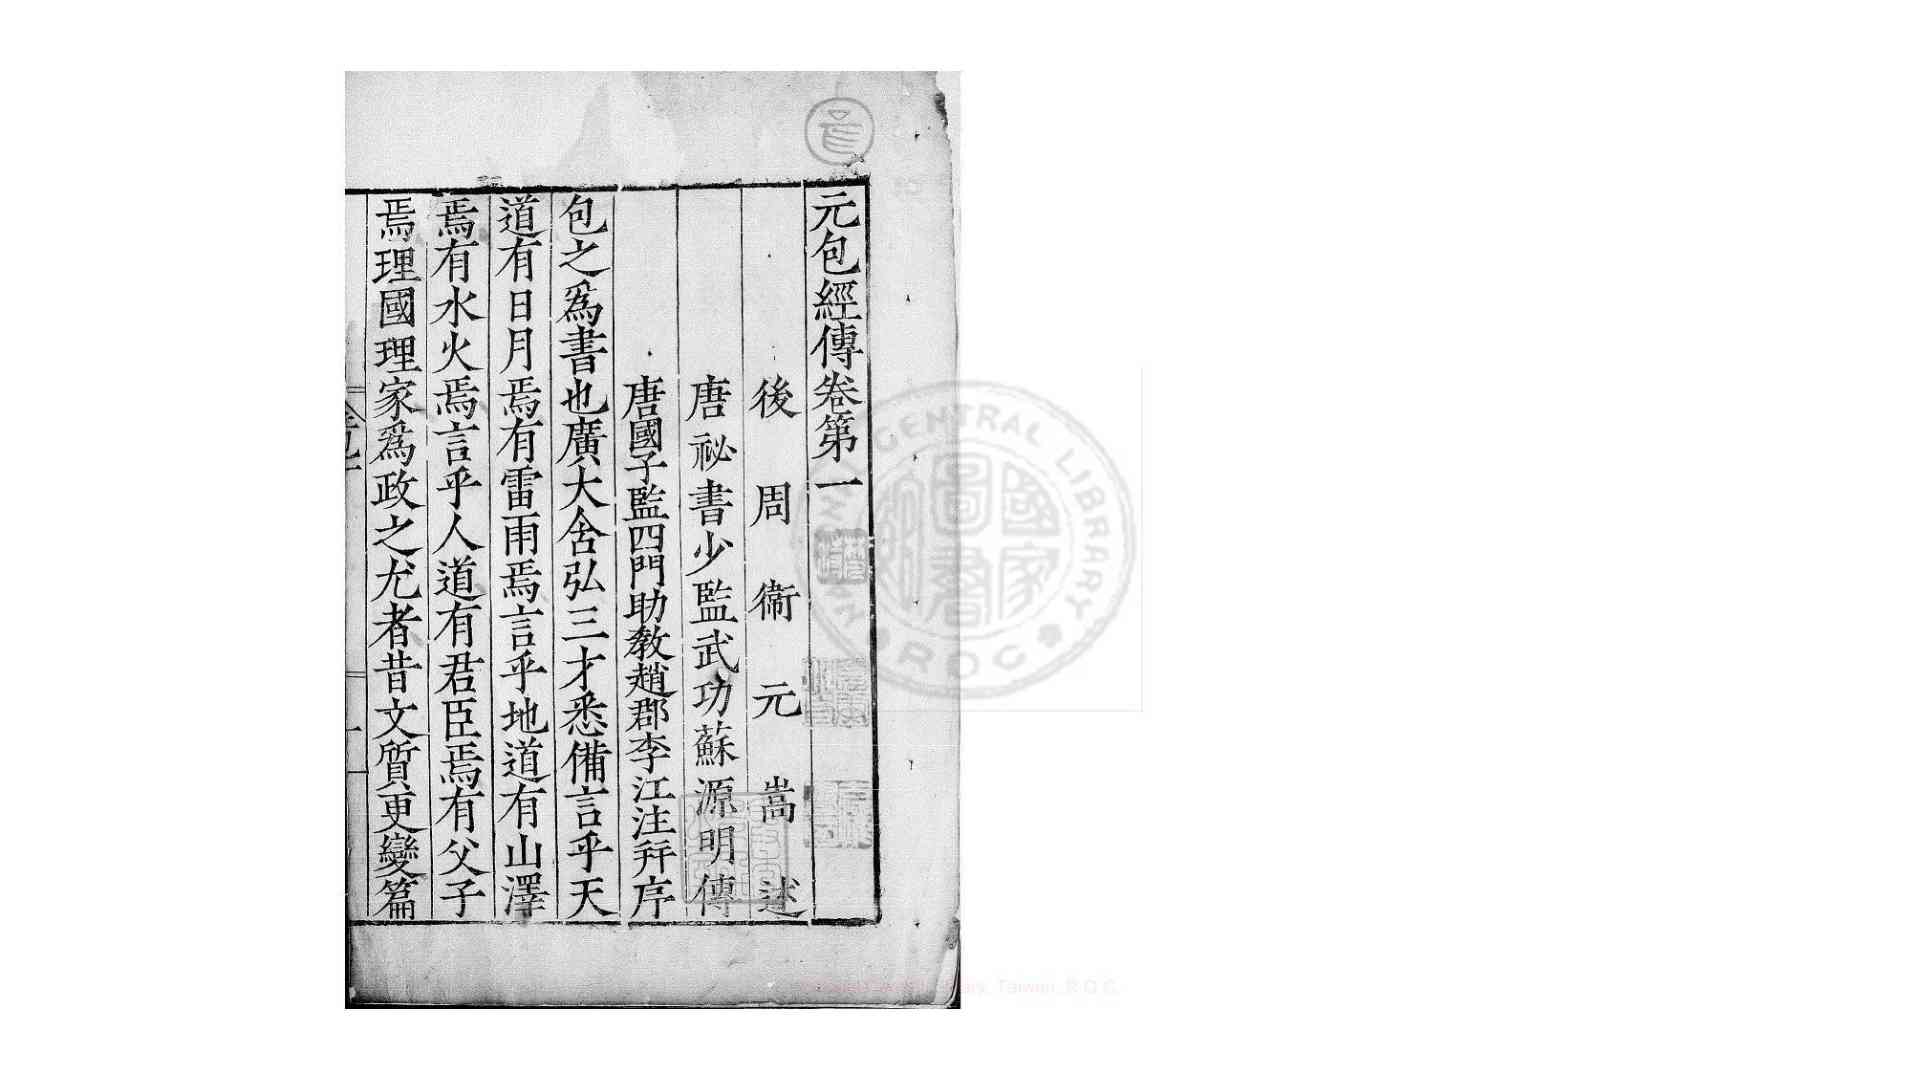 元包經傳卷第一
後周衞元嵩述
唐祕書少監武功蘇源明傳
唐國子監四門助教趙郡李江注并序
包之爲書也廣大含弘三才悉備言乎天
道有日月焉有雷雨焉言乎地道有山澤
焉有水火焉言乎人道有君臣焉有父子
焉理國理家爲政之尤者昔文質更變篇
NATIONAL CENTRAL LIBRARY
R O C
國家圖書館